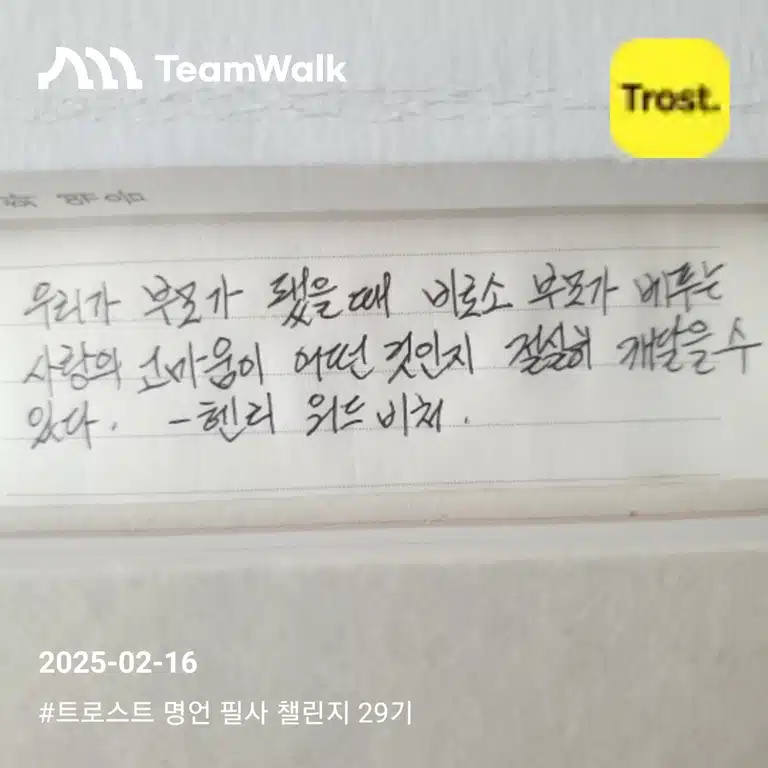 TeamWalk
Trost.
우리가 부모가 됐을 때 비로소 부모가 베푸는
사랑의 고마움이 어떤 것인지 절실히 깨달을 수
있다. - 헨리 워드 비처.
2025-02-16
#트로스트 명언 필사 챌린지 29기